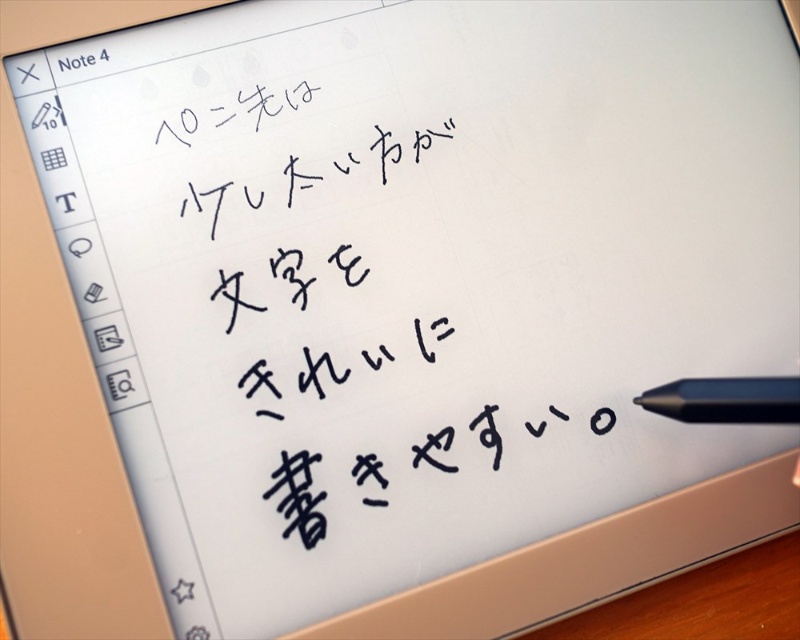 Note 4
10
T
ペン先は
少し太い方が
文字を
きれいに
書きやすい。